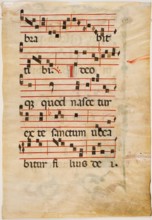 bra bit
ti bi. I deo
qꝫ quod nasce tur
ex te sanctum uoca
bitur fi lius de i.